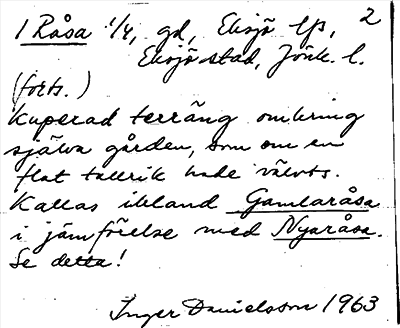 1 Råsa 1/4, gd, Eksjö lfs, 2
Eksjö stad, Jönk. l.
(forts.)
Kuperad terräng omkring
själva gården, som om en
flat tallrik hade välvts.
Kallas ibland Gamlaråsa
i jämförelse med Nyaråsa.
Se detta!
Inger Danielsson 1963